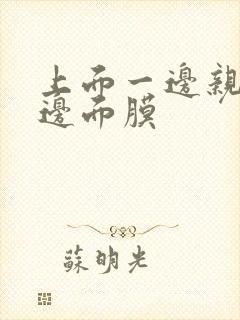 上而一邊親
邊而膜
蘇明光